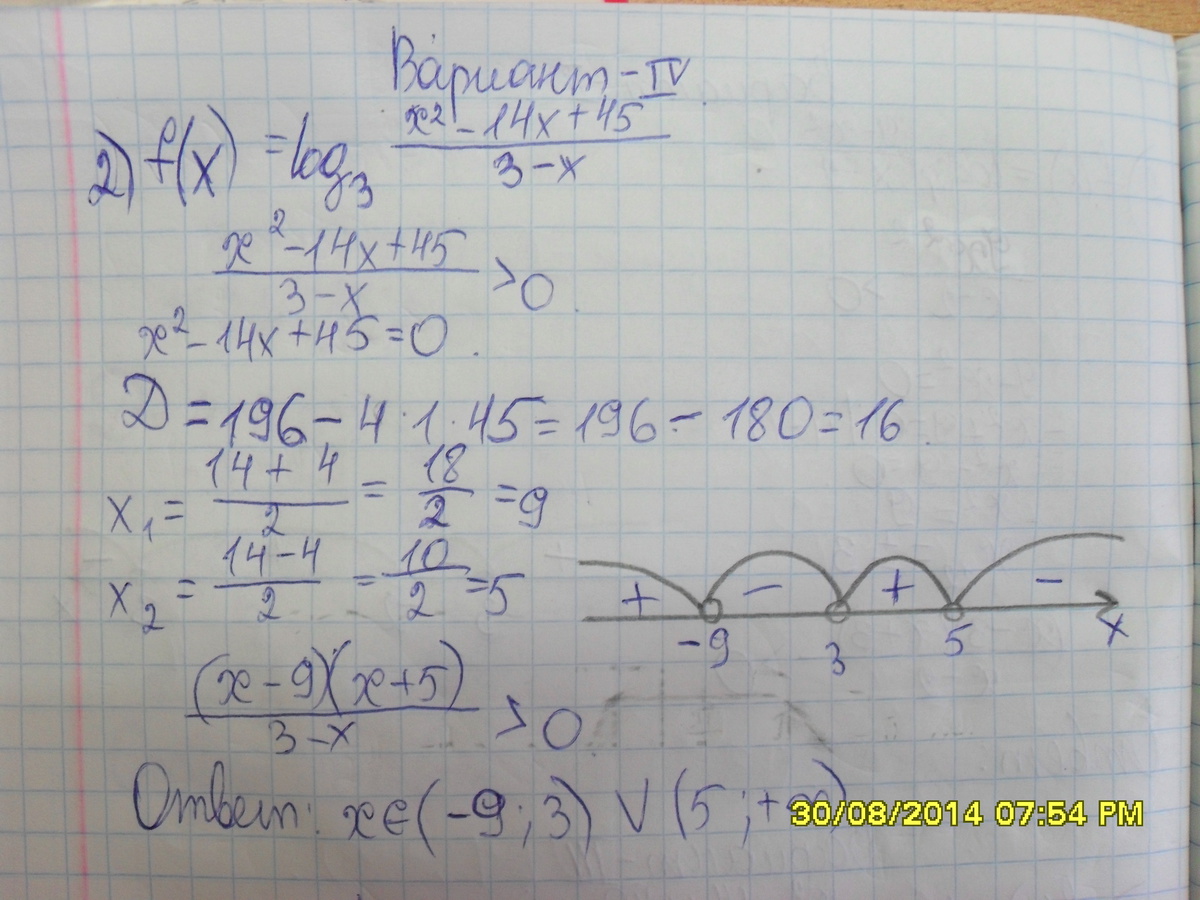 Вариант - IV
2) f(x) = log₃ (x² - 14x + 45)/(3 - x)
(x² - 14x + 45)/(3 - x) > 0
x² - 14x + 45 = 0.
D = 196 - 4 · 1 · 45 = 196 - 180 = 16
x₁ = (14 + 4)/2 = 18/2 = 9
x₂ = (14 - 4)/2 = 10/2 = 5
+ - + -
-9 3 5 x
(x - 9)(x + 5)/(3 - x) > 0
Ответ: x ∈ (-9; 3) ∨ (5; +∞)
30/08/2014 07:54 PM